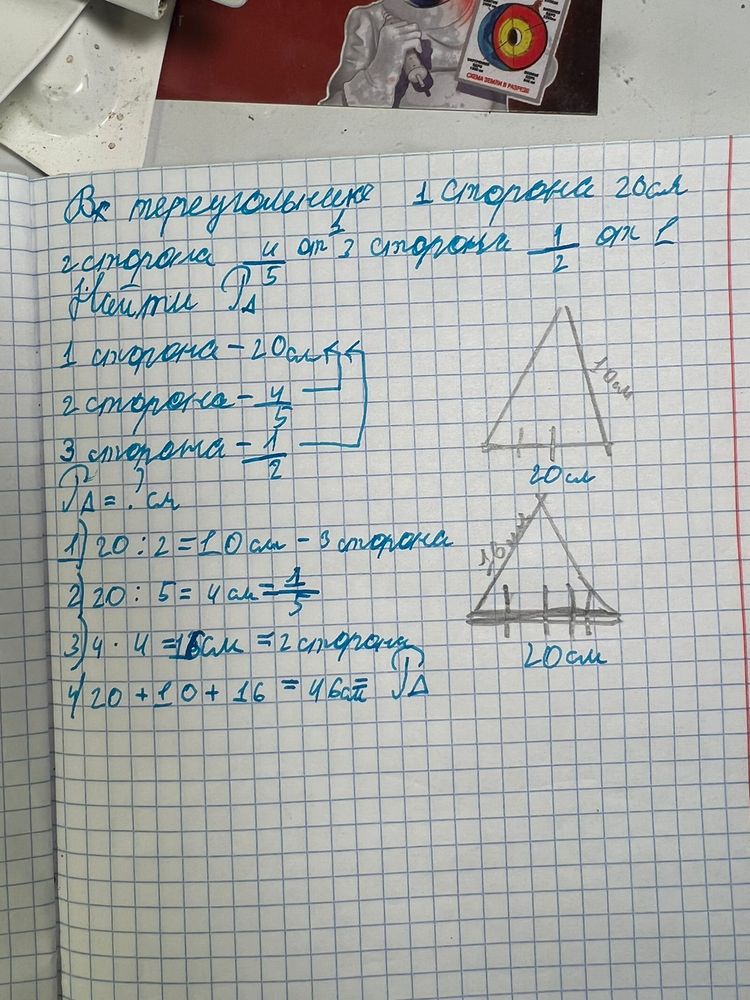 СХЕМА ЗЕМЛИ В РАЗРЕЗЕ
В тереугольнике 1 сторона 20см
2 сторона 4/5 от 1 3 сторона 1/2 от 1
Найти P△
1 сторона - 20см
2 сторона - 4/5
3 сторона - 1/2
P△ = ? см
1) 20 : 2 = 10см - 3 сторона
2) 20 : 5 = 4см = 1/5
3) 4 · 4 = 16см = 2 сторона
4) 20 + 10 + 16 = 46см = P△
10см
20см
16см
20см